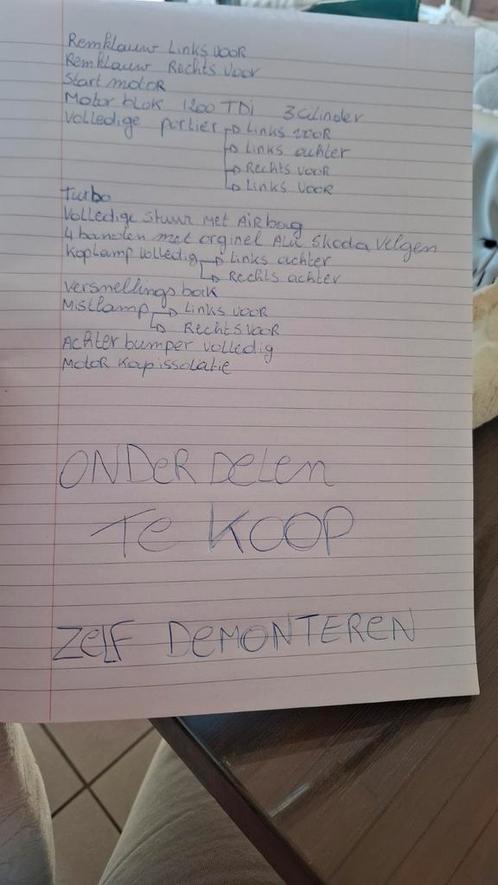 Remklauw Links vooR
Remklauw Rechts voor
Start motoR
Motor blok 1200 TDi 3 Cilinder
Volledige portier → Links vooR
→ Links achter
→ Rechts vooR
→ Links vooR
Turbo
Volledige Stuur Met AiRbag
4 banden met orginel Alu Skoda Velgen
Koplamp volledig → Links achter
→ Rechts achter
Versnellings bak
Mistlamp → Links vooR
→ RechtsvooR
Achter bumper volledig
MotoR Kap issolatie
ONDeR Delen
Te KOOP
Zelf DeMONTEREN